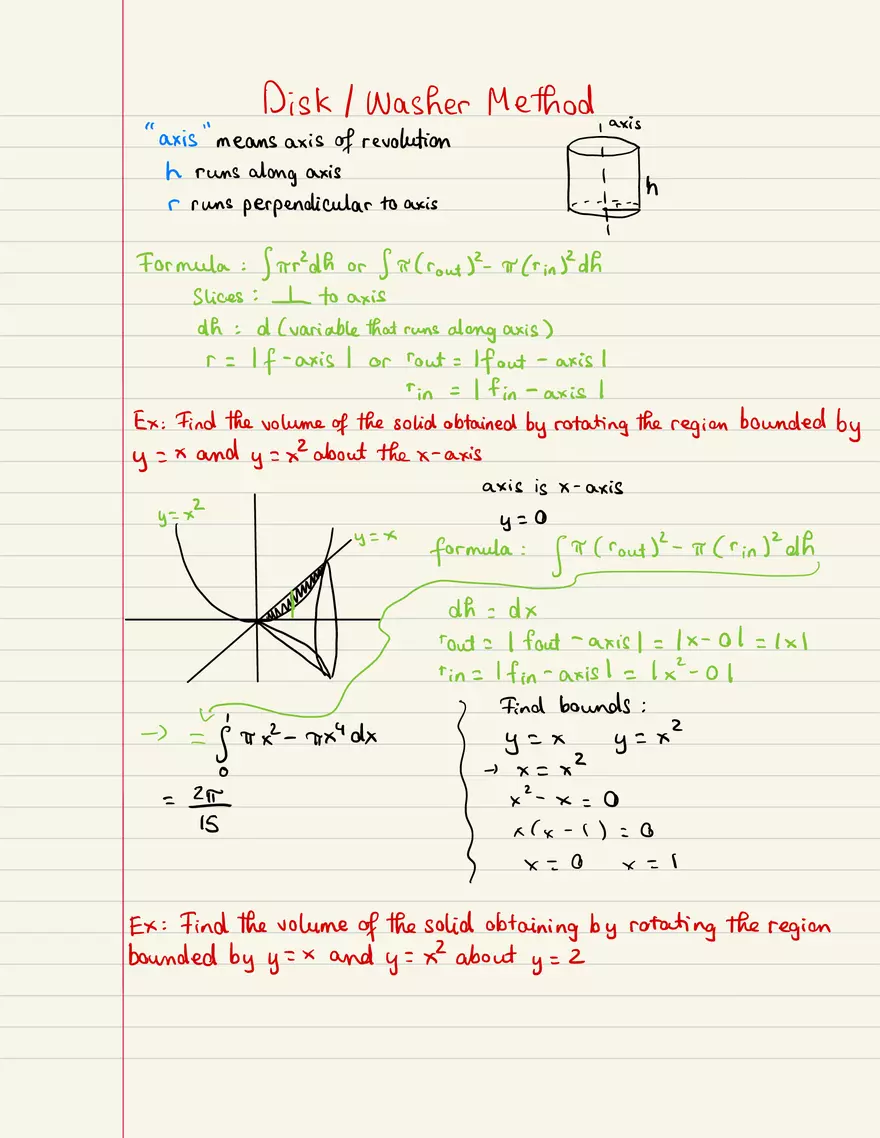 Disk / Washer Method
"axis" means axis of revolution
h runs along axis
r runs perpendicular to axis
axis
h
r
Formula : ∫πr²dh or ∫π(rout)² - π(rin)²dh
Slices : ⊥ to axis
dh : d (variable that runs along axis)
r = |f - axis| or rout = |fout - axis|
rin = |fin - axis|
Ex: Find the volume of the solid obtained by rotating the region bounded by
y = x and y = x² about the x-axis
y = x²
y = x
axis is x-axis
y = 0
formula : ∫π(rout)² - π(rin)²dh
dh = dx
rout = |fout - axis| = |x - 0| = |x|
rin = |fin - axis| = |x² - 0|
→ = ∫₀¹ πx² - πx⁴ dx
= 2π/15
Find bounds :
y = x y = x²
→ x = x²
x² - x = 0
x(x - 1) = 0
x = 0 x = 1
Ex: Find the volume of the solid obtaining by rotating the region
bounded by y = x and y = x² about y = 2